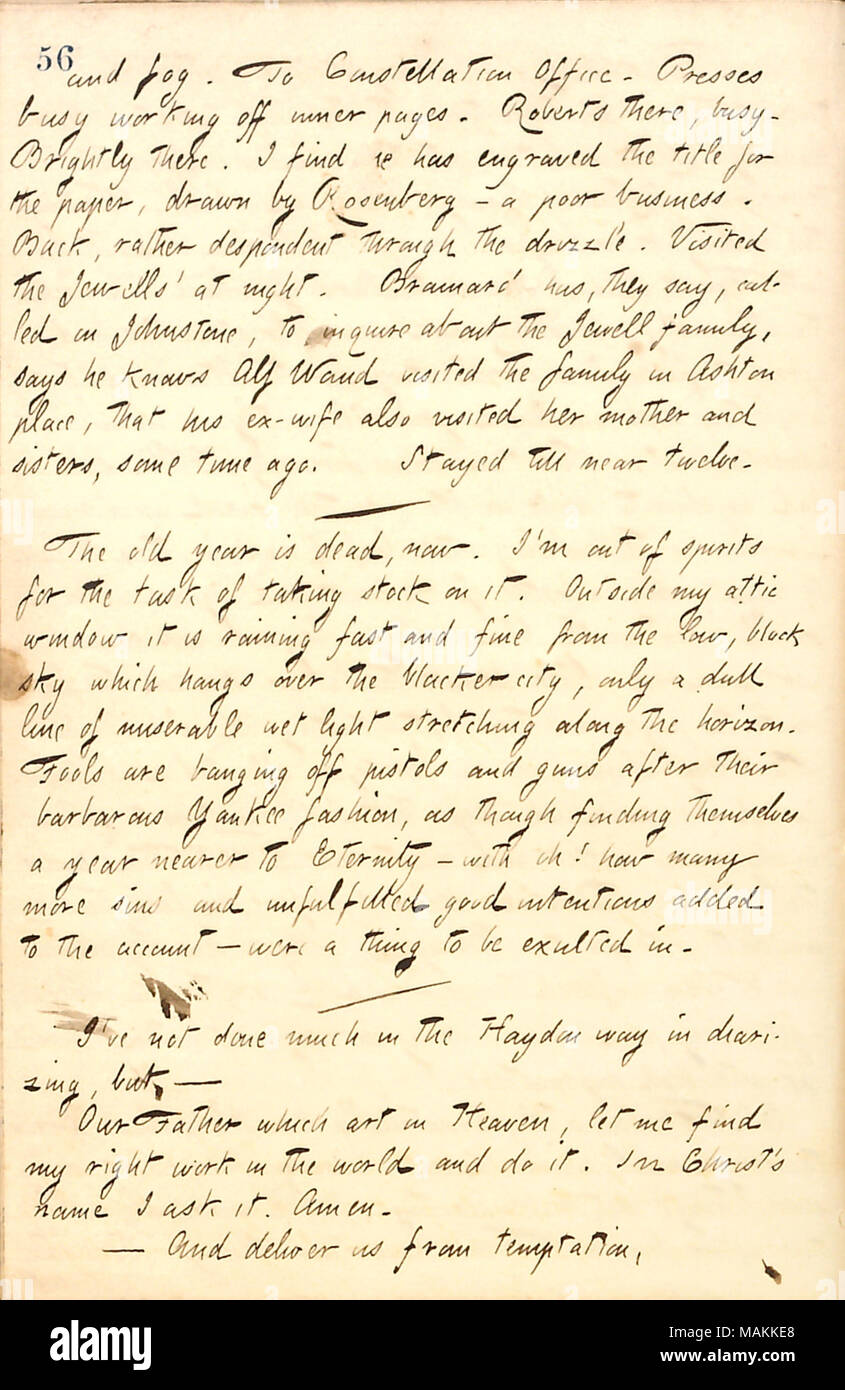 56
and fog. To Constellation Office. Presses
busy working off inner pages. Roberts there, busy.
Brightly there. I find he has engraved the title for
the paper, drawn by Rosenberg — a poor business.
Back, rather despondent through the drizzle. Visited
the Jewells' at night. Brainard has, they say, cal-
led on Johnstone, to inquire about the Jewell family,
says he knows Alf Waud visited the family in Ashton
place, that his ex-wife also visited her mother and
sisters, some time ago. Stayed till near twelve.
The old year is dead, now. I'm out of spirits
for the task of taking stock on it. Outside my attic
window it is raining fast and fine from the low, black
sky which hangs over the blacker city, only a dull
line of miserable wet light stretching along the horizon.
Fools are banging off pistols and guns after their
barbarous Yankee fashion, as though finding themselves
a year nearer to Eternity — with oh! how many
more sins and unfulfilled good intentions added
to the account — were a thing to be exulted in.
I've not done much in the Haydon way in diari-
zing, but, —
Our Father which art in Heaven, let me find
my right work in the world and do it. In Christ's
name I ask it. Amen.
— And deliver us from temptation,
alamy
Image ID: MAKKE8
www.alamy.com